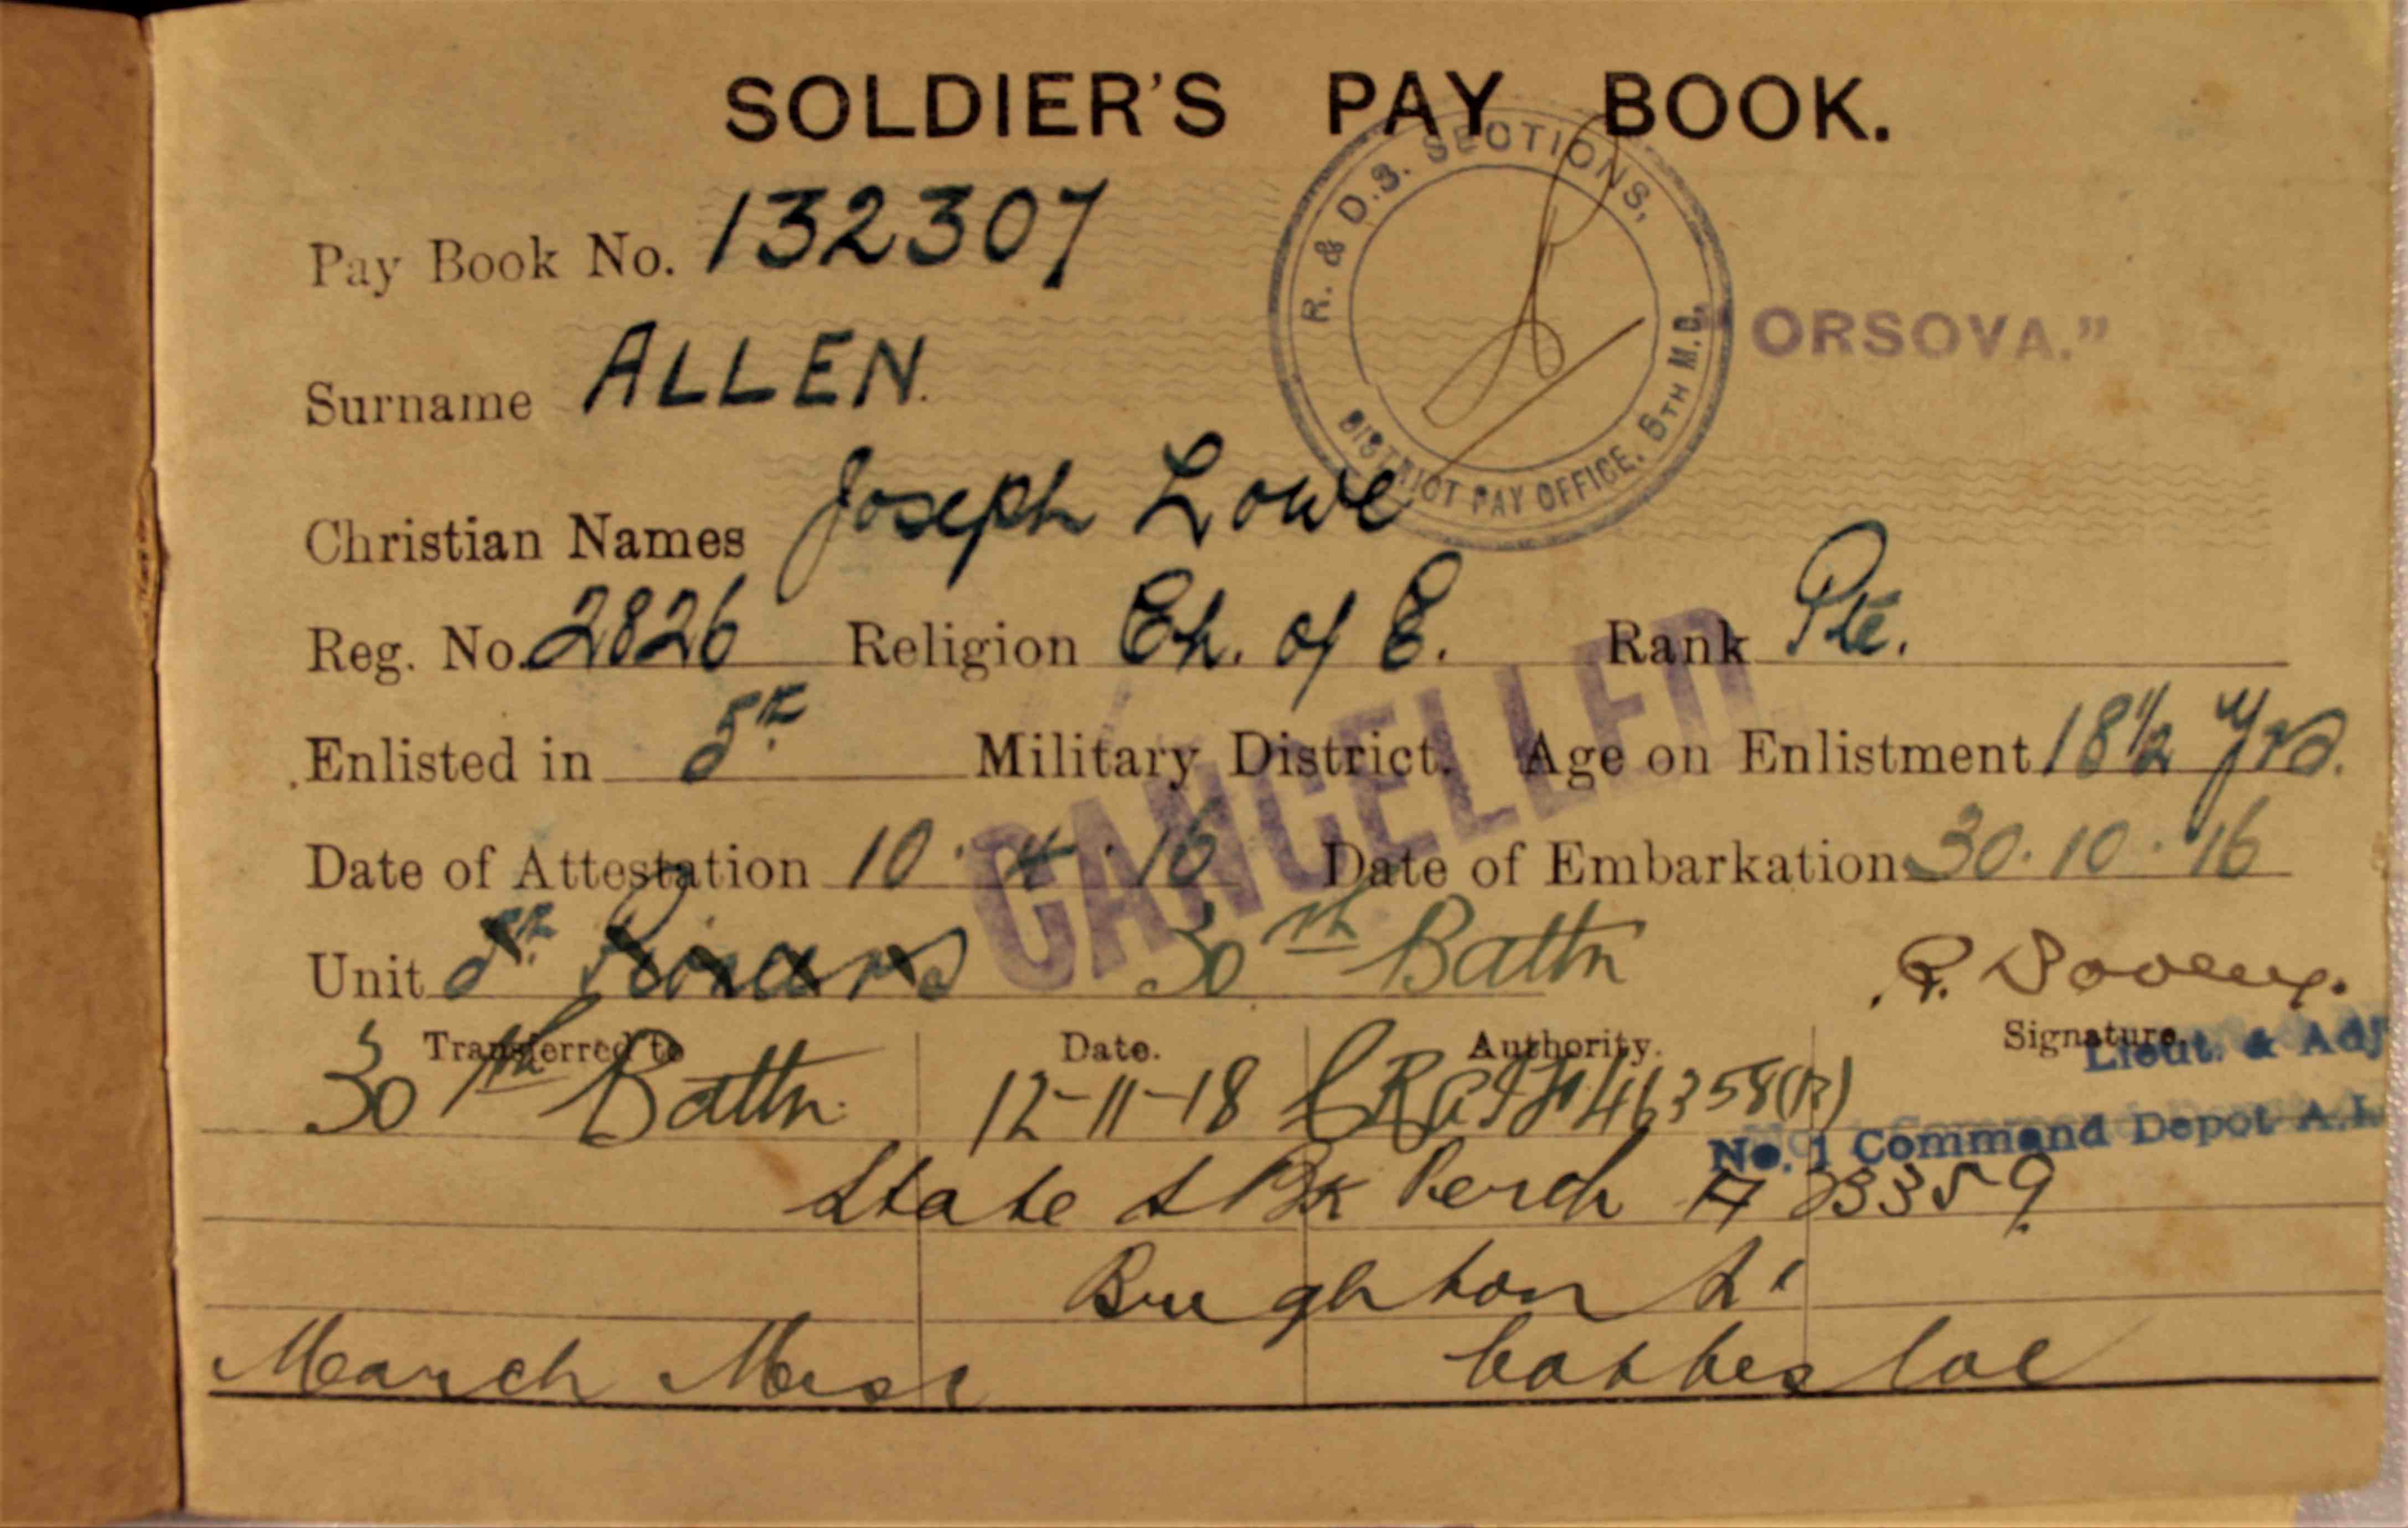 SOLDIER'S PAY BOOK.
Pay Book No. 132307
R. & D.S. SECTIONS,
DISTRICT PAY OFFICE. 5TH M.D.
ORSOVA."
Surname ALLEN.
Christian Names Joseph Lowe
Reg. No. 2826 Religion Ch. of E. Rank Pte.
Enlisted in 5th Military District. Age on Enlistment 18½ Yrs.
CANCELLED
Date of Attestation 10.4.16 Date of Embarkation 30.10.16
Unit 5th Pioneers 30th Battn
Transferred to Date. Authority. Signature.
Lieut. & Adj
30th Battn. 12-11-18 46358(R)
No. 1 Command Depot A.I.
State S Bk Perth A 33359
Brighton St
March Cottesloe